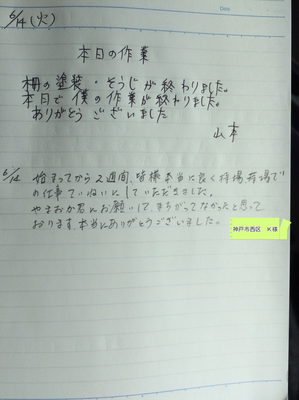 Date
6/14(火)
本日の作業
柵の塗装・そうじが終わりました。
本日で僕の作業が終わりました。
ありがとうございました
山本
6/14 始まってから2週間、皆様本当に良く持場、持場で
の仕事ていねいにしていただきました。
やまおか君にお願いして、まちがってなかったと思って
おります、本当にありがとうございました。
神戸市西区 K様